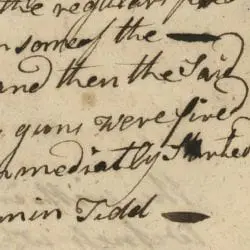 the regulars fire
on some of the —
and then the Said
guns were fired
mmediatly Started
min Tidd —